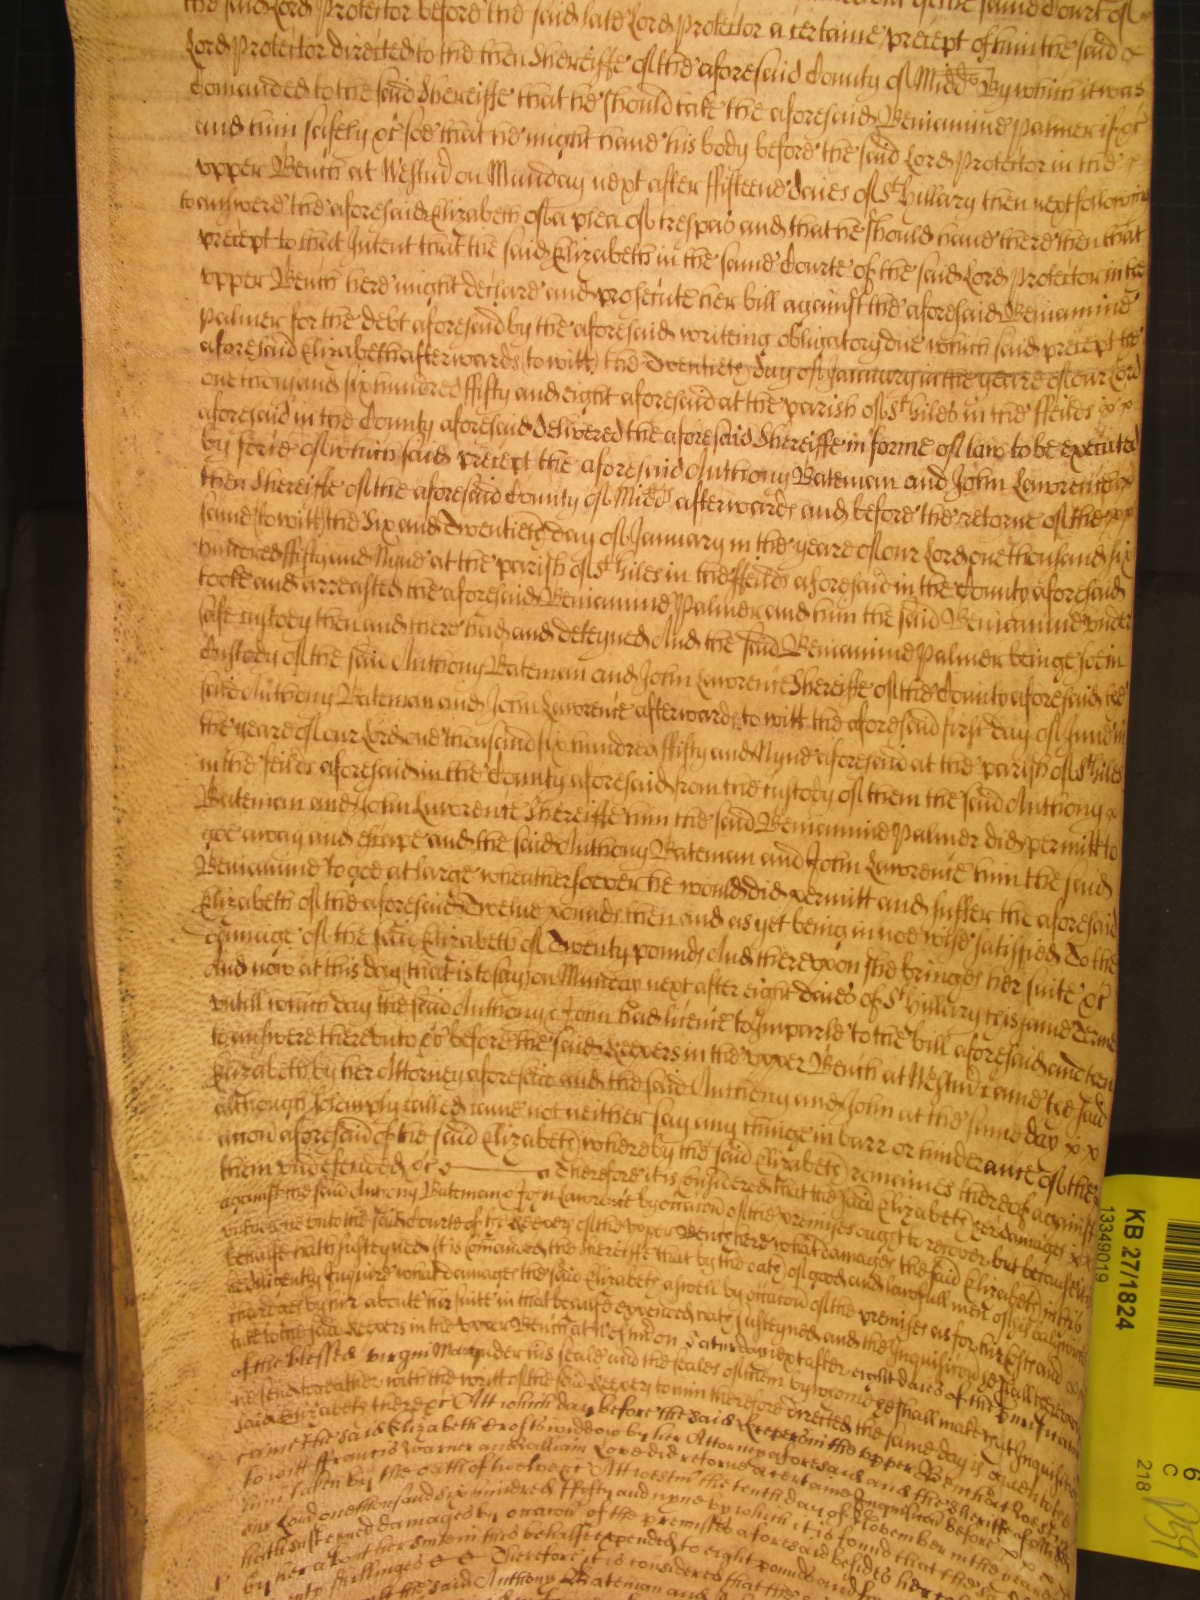 the said Lord Protector before the said late Lord Protector a certaine precept of him the said
Lord Protector directed to the then Shereiffe of the aforesaid County of Midds By which it was
Comanded to the said Shereiffe that he should take the aforesaid Beniamine Palmer if &c
and him safely &c soe that he might have his body before the said Lord Protector in the
upper Bench at Westm on Munday next after fifteene daies of St Hillary then next following
to answere the aforesaid Elizabeth of a plea of trespas and that he should have there then that
precept to that Intent that the said Elizabeth in the same Courte of the said Lord Protector in the
upper Bench here might declare and prosecute her bill against the aforesaid Beniamine
Palmer for the debt aforesaid by the aforesaid writeing obligatory due which said precept the
aforesaid Elizabeth afterwards to witt the Twentieth day of January in the yeare of our Lord
one thousand six hundred fifty and eight aforesaid at the parish of St Giles in the ffeilds x x
aforesaid in the County aforesaid delivered the aforesaid Shereiffe in forme of law to be executed
by force of which said precept the aforesaid Anthony Bateman and John Lawrence
then Shereiffe of the aforesaid County of Midds afterwards and before the retorne of the
same to witt the Six and Twentieth day of January in the yeare of our Lord one thousand six
hundred fifty and Nyne at the parish of St Giles in the ffeilds aforesaid in the County aforesaid
tooke and arreasted the aforesaid Beniamine Palmer and him the said Beniamine under
safe custody then and there had and deteyned And the said Beniamine Palmer beinge soe in
Custody of the said Anthony Bateman and John Lawrence Shereiffe of the County aforesaid the
said Anthony Bateman and John Lawrence afterwards to witt the aforesaid first day of June in
the yeare of our Lord one thousand six hundred fifty and Nyne aforesaid at the parish of St Giles
in the feilds aforesaid in the County aforesaid from the custody of them the said Anthony
Bateman and John Lawrence Shereiffe him the said Beniamine Palmer did permitt to
goe away and escape and the said Anthony Bateman and John Lawrence him the said
Beniamine to goe at large wheathersoever he would did permitt and suffer the aforesaid
Elizabeth of the aforesaid Twelve pounds then and as yet being in noe wise satisfied To the
damage of the said Elizabeth of Twenty pounds And thereupon she bringes her suite &c
And now at this day that is to say on Munday next after eight daies of St Hillary this same Terme
untill which day the said Anthony & John had licence to Imparle to the bill aforesaid and then
to answere thereunto &c before the said Keepers in the upper Bench at Westm came the said
Elizabeth by her Attorney aforesaid and the said Anthony and John at the same day x x
although solemply called came not neither say any thinge in barr or hinderance of the
accon aforesaid of the said Elizabeth whereby the said Elizabeth remaines thereof against
them undefended &c Therefore it is considered that the said Elizabeth her damages x x
against the said Anthony Bateman & John Lawrence by occacon of the premises ought to recover but because it is
unknowne unto the said Courte of the Keepers of the upper Bench here what damages the said Elizabeth in this
behalfe hath susteyned it is comanded the Shereiffe that by the oath of good and lawfull men of his
diligently Inquire what damages the said Elizabeth aswell by occacon of the premises as for her Costs and
charges by her about her suite in that behalfe expended hath susteyned and the Inquisicon he shall thereupon
take to the said Keepers in the upper Bench at Westm on Saturday next after eight daies of the Purificacon
of the blessed virgin Mary under his seale and the seales of them by whom he shall make that Inquisicon
he send togeather with the writt of the said Keepers to him therefore directed the same day is given to the
said Elizabeth there &c Att which day before the said Keepers in the upper Bench att Westm
came the said Elizabeth Crofts widdow by her Attorney aforesaid and the Sheriffe of Midds
to witt ffrancis Warner and William Love did retorne a certaine Inquisicon before
him taken by the oath of twelve &c Att Westm the tenth day of November in the yeare of
our Lord one thousand six hundred fifty and nyne by which it is found that the said
hath susteyned damages by occacon of the premisses aforesaid besides her
by her about her suite in this behalfe expended to eight pounds and for
twenty shillinges & & Therefore it is considered that the
the said Anthony Bateman and
KB 27/1824
13349019
6
C
218